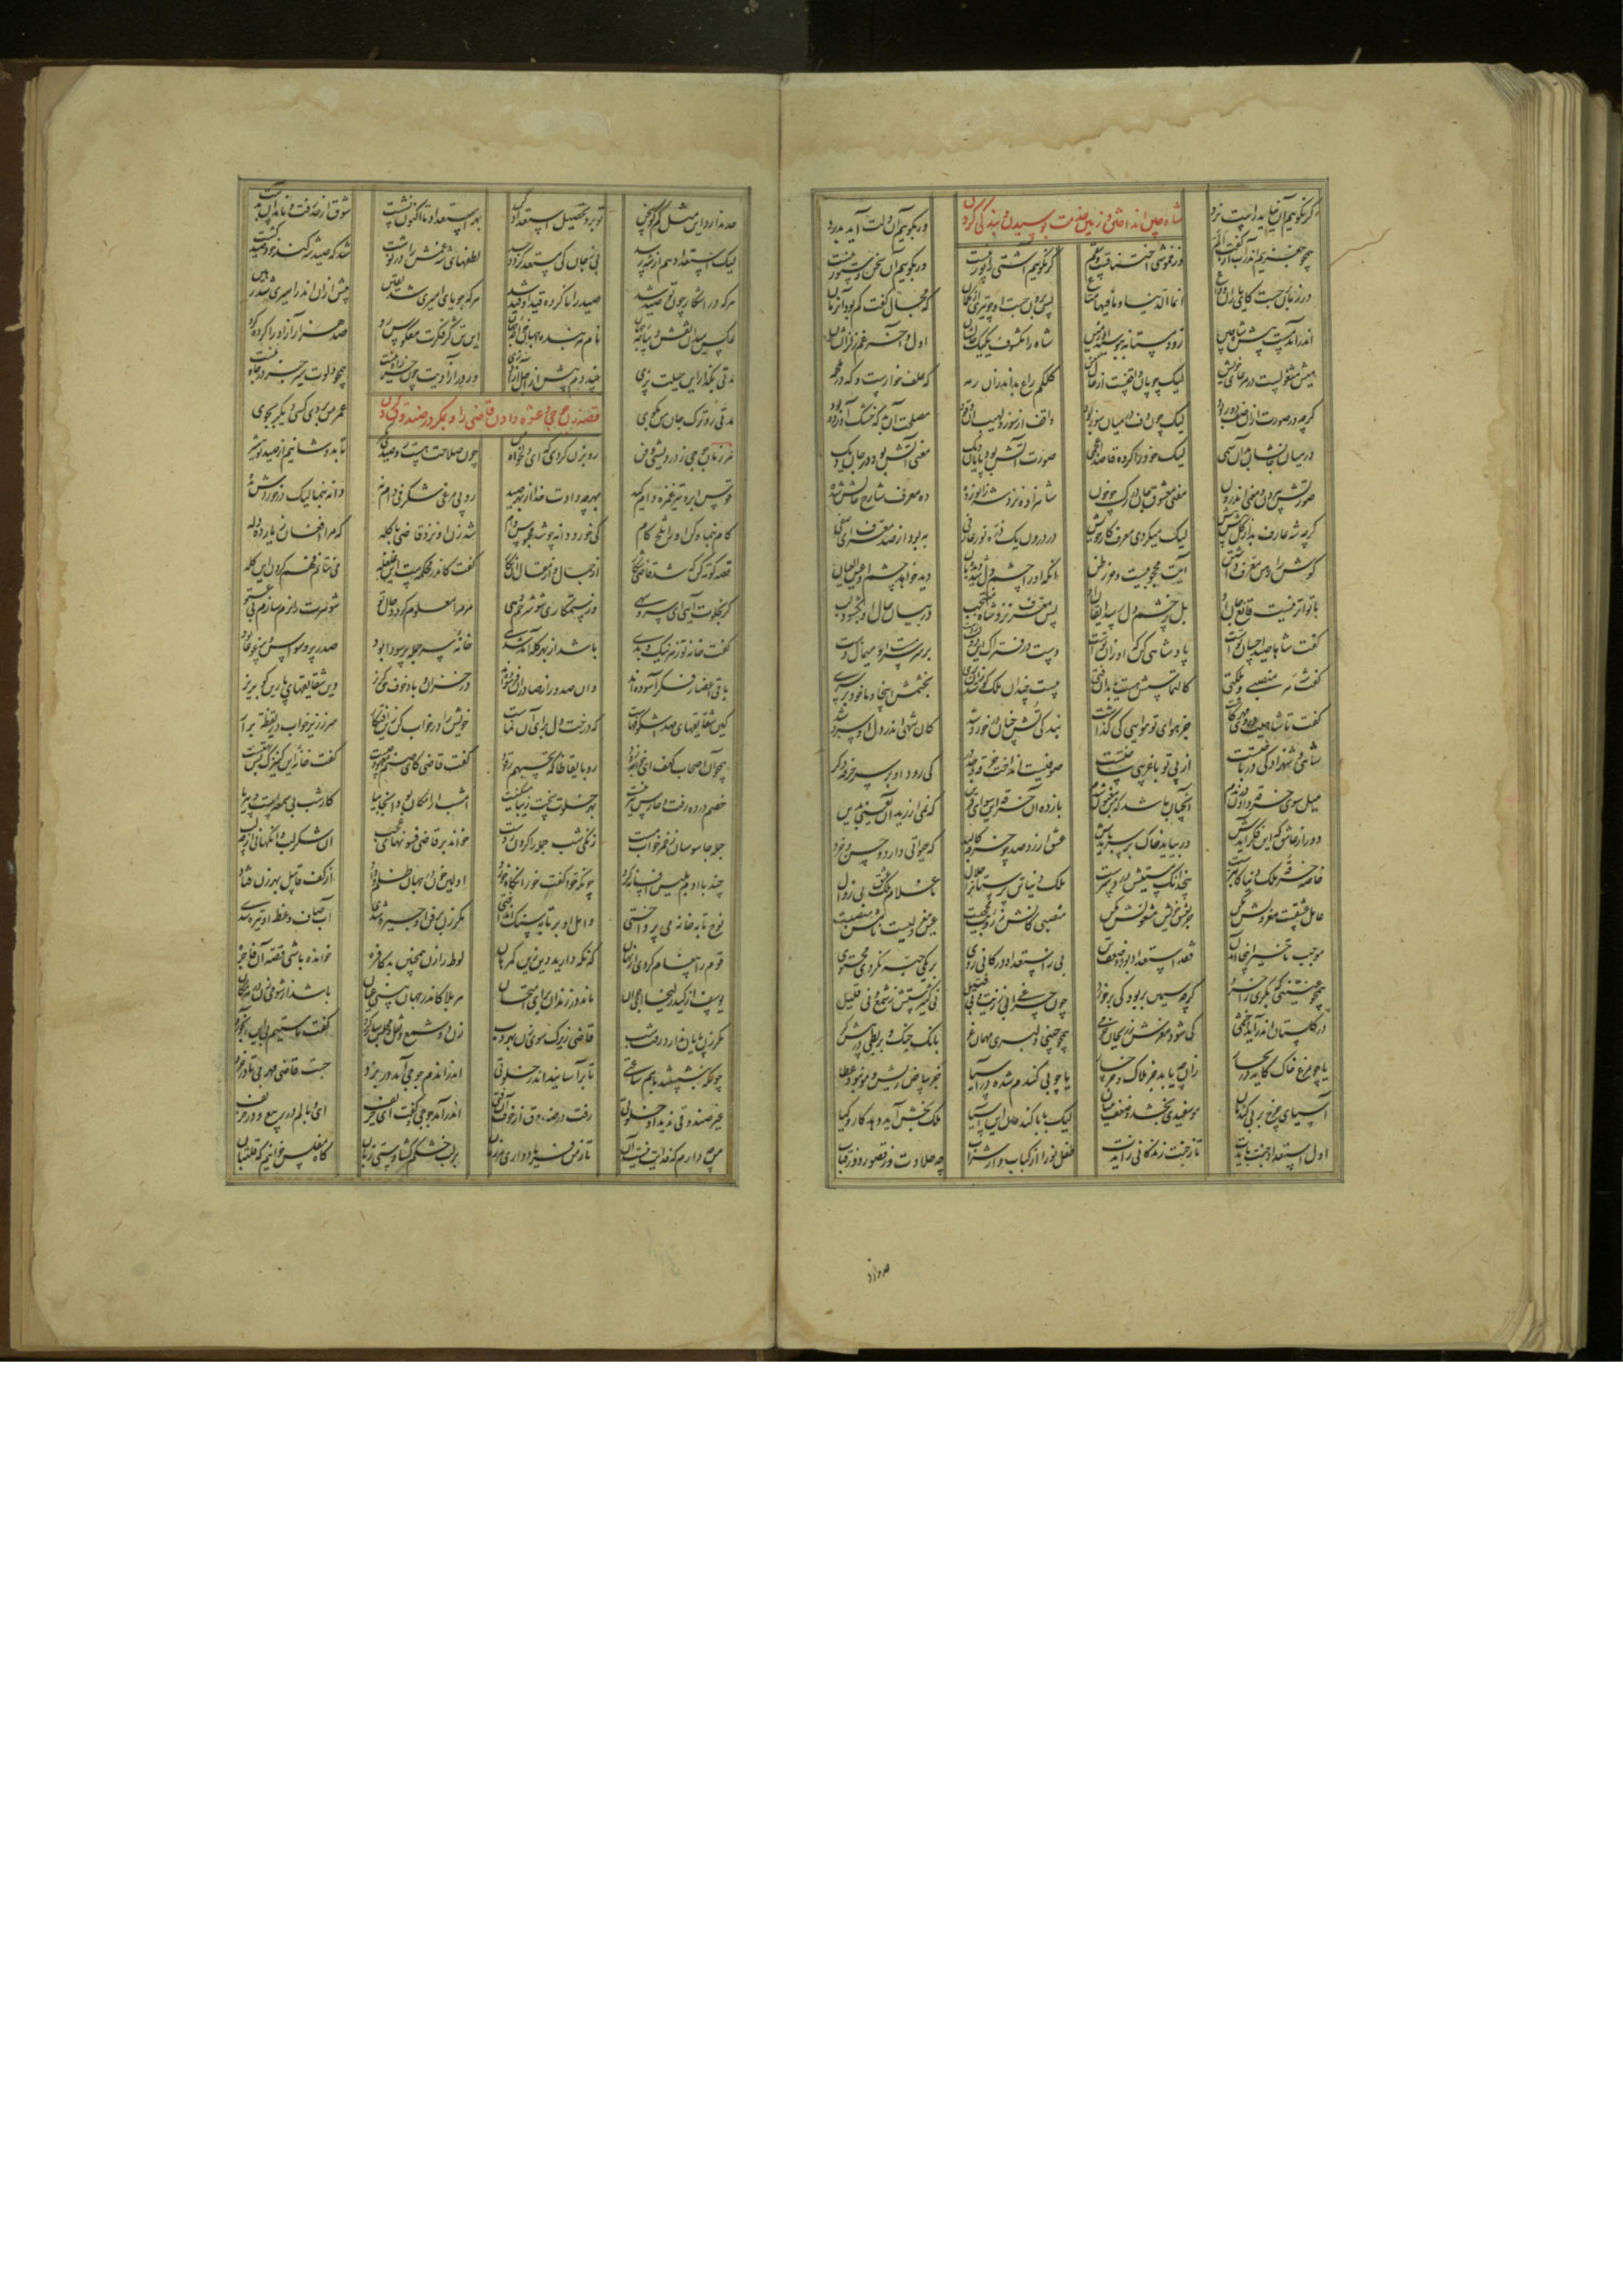 گر نگویم آن نیاید راست نرد شاه چین انداختن و زمین خدمت بوسیدن و بندگی کردن ور بگویم آن دلت آید بدرد
همچو چغزیم اندر آب از گفت الم وز خموشی اختناقست و سقم گر نگویم آشتی را نور نیست ور بگویم آن سخن دستور نیست
در زمان برجست کای یاران وداع انما الدنیا و ما فیها متاع پس برون جست او چو تیری از کمان که مجال گفت کم بود آن زمان
اندر آمد مست پیش شاه چین زود مستانه ببوسید او زمین شاه را مکشوف یک یک حالشان اول و آخر غم و زلزالشان
میش مشغولست در مرعای خویش لیک چوپان واقفست از حال میش کلکم راع بداند از رمه که علف خوارست و که در ملحمه
گرچه در صورت از آن صف دور بود لیک چون دف در میان سور بود واقف از سوز و لهیب آن وفود مصلحت آن بد که خشک آورده بود
در میان جانشان بود آن سمی لیک خود را کرده قاصد اعجمی صورت آتش بود پایان دیگ معنی آتش بود در جان دیگ
صورتش بیرون و معنی اندرون معنی معشوق جان در رگ چو خون شاهزاده نزد شه زانو زده ده معرف شارح حالش شده
گرچه شه عارف بد از کل پیش پیش لیک میکردی معرف کار خویش در درون یک ذره نور عارفی به بود از صد معرف ای صفی
گوش را رهن معرف داشتن آیت محجوبیست و حزر و ظن آنکه او را چشم دل شد دیدبان دید خواهد چشم او عین العیان
با تواتر نیست قانع جان او بل ز چشم دل رسد ایقان او پس معرف نزد شاه منتجب در بیان حال او بگشود لب
گفت شاها صید احسان توست پادشاهی کن که او زان توست دست در فتراک این دولت زدست بر سر سرمست او میمال دست
گفت شه هر منصبی و ملکتی کالتماسش هست یابد این فتی بیست چندان ملک کو شد زان بری بخشمش اینجا و ما خود بر سری
گفت تا شاهیت در وی عشق کاشت جز هوای تو هوایی کی گذاشت بندگی تش چنان در خورد شد کان شهی اندر دل او سرد شد
شاهی و شهزادگی در باختست از پی تو با غریبی ساختست صوفیست انداخت خرقه وجد در کی رود او بر سر خرقه دگر
میل سوی خرقه داده و ندم آنچنان باشد که من مغبون شدم باز ده آن خرقه این سو ای قرین که نمی ارزید آن یعنی بدین
دور از عاشق که این فکر آیدش ور بیاید خاک بر سر بایدش عشق ارزد صد چو خرقه کالبد که حیاتی دارد و حس و خرد
خاصه خرقه ملک دنیا کابترست پنج دانگ مستیش درد سرست ملک دنیا تن پرستان را حلال ما غلام ملک عشق بی زوال
عامل عشقست معزولش مکن جز بعشق خویش مشغولش مکن منصبی کانش ز رؤیت محجبست عین معزولیست نامش منصبست
موجب تاخیر اینجا آمدن فقد استعداد بود و ضعف تن بی ز استعداد در کانی روی بر یکی حبه نگردی محتوی
همچو عنینی که بکری را خرد گرچه سیمین بر بود کی برخورد چون چراغی بی ز زیت و بی فتیل نی کثیرستش ز شمع و نی قلیل
در گلستان اندر آید اخشمی کی شود مغزش ز ریحان خرمی همچو خوبی دلبری مهمان غر بانگ چنگ و بربطی در پیش کر
یا چو مرغ خاک کاید در بحار زان چه یابد جز هلاک و جز خسار یا چو بی گندم شده در آسیا جز بیاض ریش و مو نبود عطا
آسیای چرخ بر بی گندمان موسفیدی بخشد و ضعف میان لیک با باگندمان این آسیا ملک بخش آید دهد کار و کیا
اول استعداد جنت بایدت تا ز جنت زندگانی زایدت طفل نو را از کباب و از شراب چه حلاوت وز قصور و از قباب
حد ندارد
حد ندارد این مثل کم گو سخن تو برو تحصیل استعداد کن بهر استعداد تا اکنون نشست شوق از حد رفت و نامد آن بدست
لیک استعداد هم از شه رسد بی ز جان کی مستعد گردد جسد لطفهای شه غمش را در نوشت شد که صید شه کند خود صید گشت
هر که در اشکار چون تو صید شد صید را ناکرده قید او قید شد هر که جویای امیری شد یقین پیش از آن اندر اسیری شد رهین
عکس میدان نقش دیباجه جهان نام هر بنده جهان خواجه جهان ای تن کژ فکرت معکوس رو صد هزار آزاد را کرده گرو
مدتی بگذار این حیلت پزی چند دم پیش از اجل آزاد زی ور در آزادیت چون خر راه نیست همچو دلوت سیر جز در چاه نیست
مدتی رو ترک جان من بگوی قصه زن جوحی و عشوه دادن قاضی را و مکر در صندوق کردن عمر من بردی کسی دیگر بجوی
هر زمان جوحی ز درویشی و فن رو بزن کردی که ای دلخواه زن چون سلاحت هست رو صیدی بگیر تا بدوشانیم از صید تو شیر
قوس ابرو تیر غمزه دام کید بهر چه دادت خدا از بهر صید رو پی مرغی شگرفی دام نه دانه بنما لیک در خوردش مده
کام بنما و کن او را تلخ کام کی خورد دانه چو شد محبوس دام شد زن او نزد قاضی با گله که مرا افغان ز یار ده دله
قصه کوته کن که شد قاضی شکار از جمال و از مقال آن نگار گفت کاندر محکمه ست این غلغله می نتانم فهم کردن این گله
گر بخلوت آیی ای سرو سهی وز ستمکاری شو شرحم دهی مر مرا معلوم گردد حال تو
گفت خانه تو ز هر نیک و بدی باشد از بهر گله آمد شدی خانه سر جمله پر سودا بود صدر پر وسواس و پر غوغا بود
باقی اعضا ز فکر آسوده اند وان صدور از صادران فرسوده اند در خزان و باد خوف حق گریز وین شقایقهای پارین را بریز
که درخت دل برای آن نماست خویش را در خواب کن زین افتکار سر ز زیر خواب در یقظه برآر
همچو آن اصحاب کهف ای خواجه زود رو بایقاظا که تحسبهم رقود گفت قاضی کای صنم گفت خانه این کنیزک بس تهیست
خصم در ده رفت و حارس نیز نیست بهر خلوت سخت زیبا مسکنیست امشب ار امکان بود آنجا بیا کار شب بی سمعه است و بی ریا
جمله جاسوسان ز خمر خواب مست زنگی شب جمله را گردن زدست خواند بر قاضی فسونهای عجب آن شکر لب وانگهانی از چه لب
چند با آدم بلیس افسانه کرد چونکه حوا گفت خور آنگاه خورد اولین خون در جهان ظلم و داد از کف قابیل بهر زن فتاد
نوح تابه خانه می پرداختی واهله بر تابه سنگ انداختی مکر زن بر فن او چیره شدی آب صاف وعظ او تیره شدی
قوم را پیغام کردی از نهان که نگه دارید دین زین گمرهان لوط را زن همچنین بد کافره خوانده باشی قصه آن فاجره
یوسف از کید زلیخای جوان ماند در زندان برای امتحان هر بلا کاندر جهان بینی عیان باشد از شومی زن در هر مکان
مکر زن پایان ندارد رفت شب قاضی زیرک سوی زن بهر دب زن دو شمع و نقل مجلس ساز کرد گفت ما مستیم بی این آبخورد
چونکه بنشستند با هم ساعتی تا برآسایند اندر خلوتی اندر آن دم جوحی آمد در بزد جست قاضی مهربی تا در خزد
غیر صندوقی ندید او خلوتی رفت در صندوق از خوف آن فتی اندر آمد جوحی گفت ای حریف ای وبالم در ربیع و در خریف
من چه دارم که فدایت نیست آن تا ز من فریاد داری هر زمان بر لب خشکم گشادستی زبان گاه مفلس خوانیم گه قلتبان